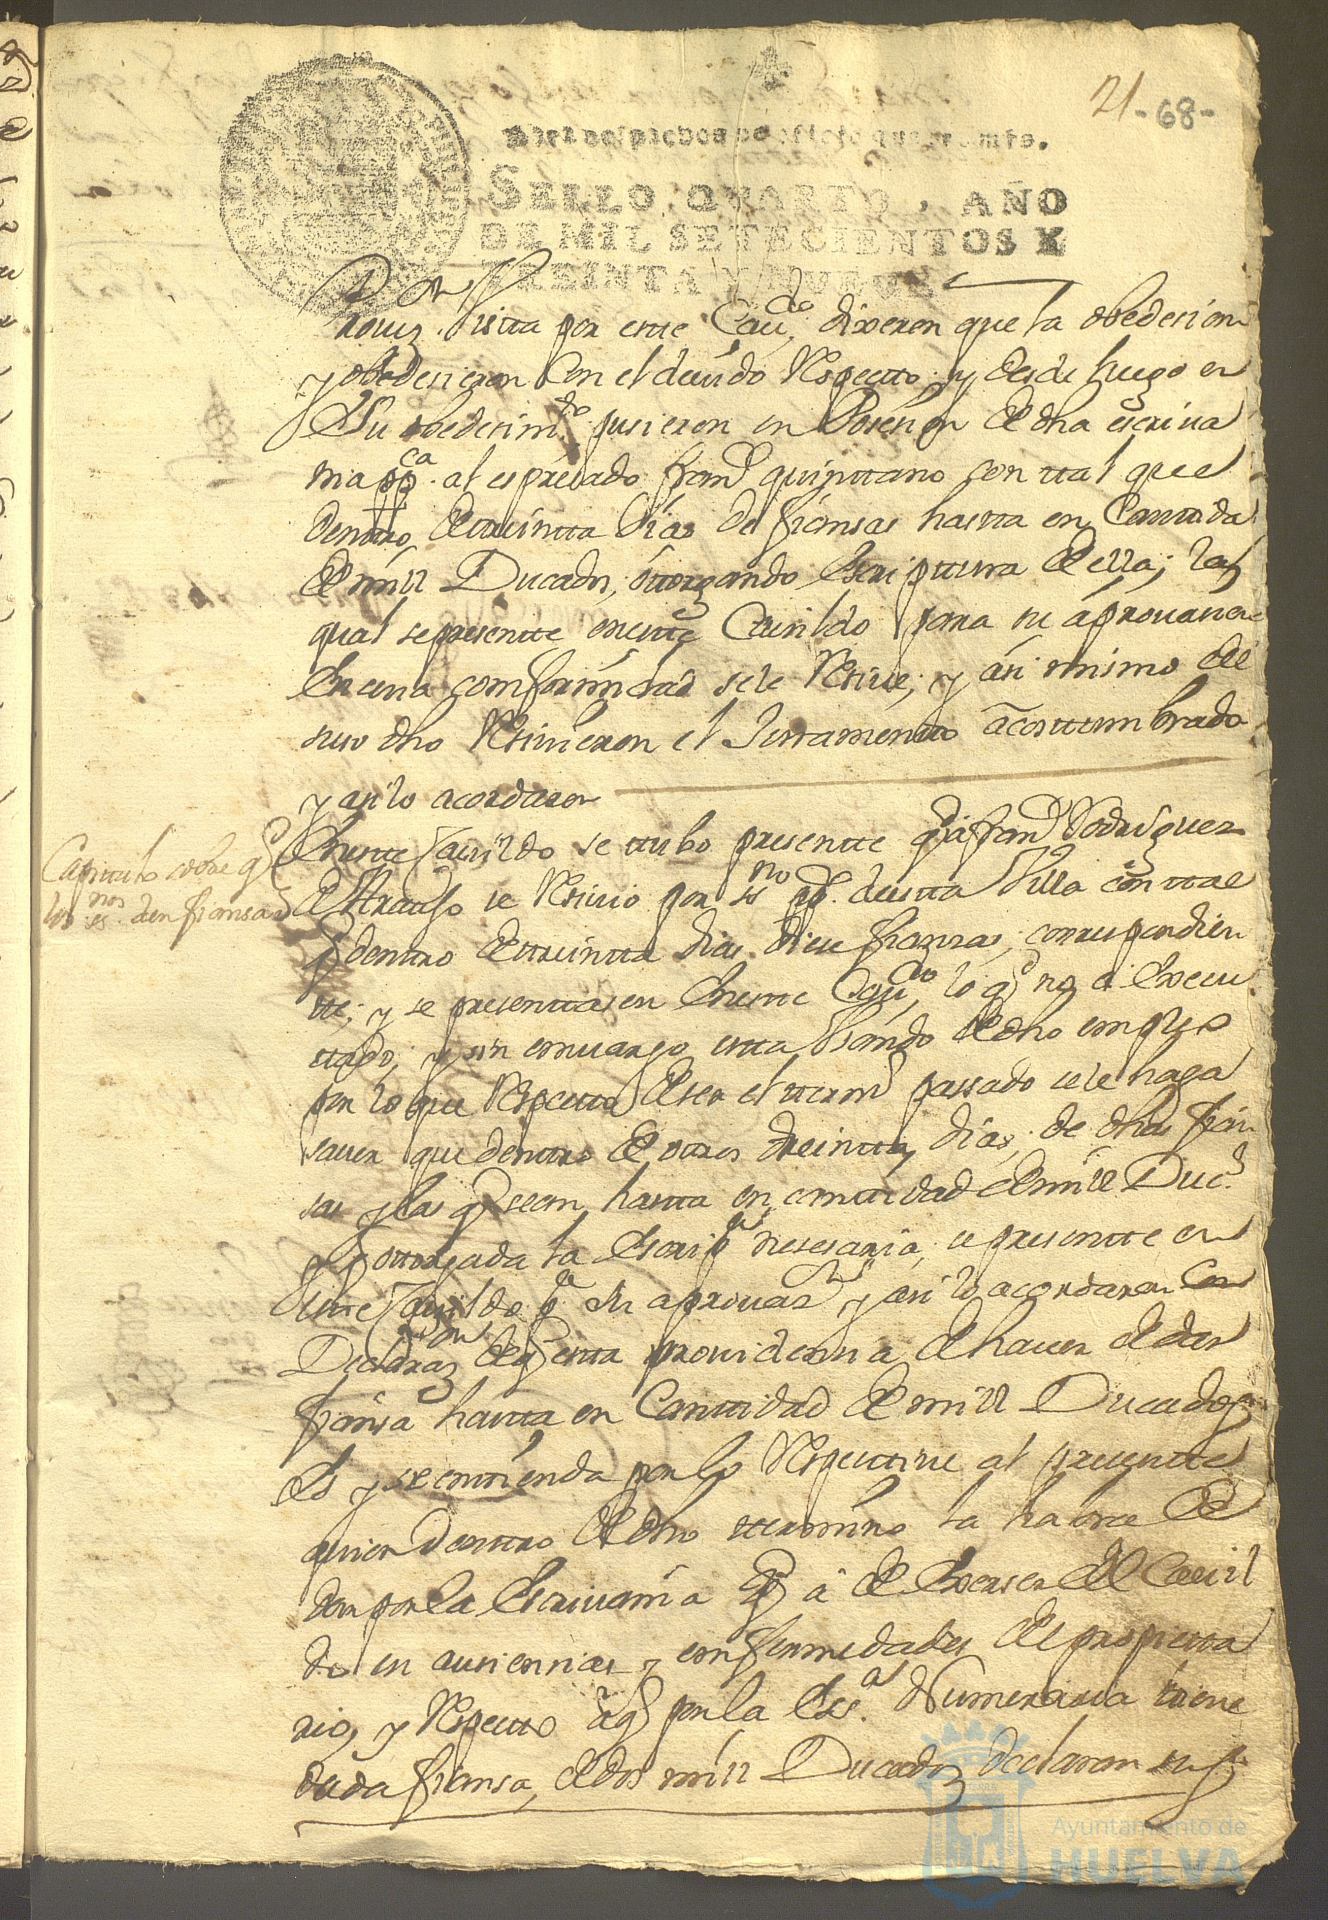 21 -68-
Para despachos de oficio quatro mrs.
SELLO QVARTO, AÑO
DE MIL SETECIENTOS Y
TREINTA Y NUEVE
vista por este Caudo. dixeron que la obedesian
y obedesieron con el deuido Respecto y desde luego en
Su obedesimto. pusieron en Posesion de dha escriua
nia ppca. al espresado Franco quinttano con ttal que
dentro de treintta dias de fiansas hastta en Canttida
de mill Ducados, ottorgando Escripttura de ella; la
qual se presentte en estte Cauildo para su aprouasion
En cuia comformidad se le Resiue; y asi mismo del
suso dho Resiuieron el Juramentto acosttumbrado
y asi lo acordaron
Capitulo sobre q
los es.nos den fiansas
En estte Cauildo se ttubo presentte q a Franco Rodriguez
de Araujo se Resiuio por ssno pp. de estta Villa con ttal
q dentro de ttreintta dias diese fianzas, correspondien
tte; y se presenttasen en estte Cauo, lo q no a Execu
ttado; y sin embargo estta Usando de dho empleo
por lo que Respectto de ser el ttermo passado se le haga
sauer que dentro de ottros treintta dias, de dhas fian
sas y las q sean hastta en canttidad de mill Ducs.
y ottorgada la Escripra nesesaria, se presentte en
estte Cauildo pa su aprouasn y asi lo acordaron Con
Declarazon de q estta prouidensia de hauer de dar
fiansa hastta en Canttidad de mill Ducados
Es y se enttienda por lo Respectiue al presentte
quien dentro de dho ttermino la ha de
dar por la Escriuania q a de Exerser del Cauil
do en ausensias y enfermedades del propietta
rio, y Respectto a q por la Esc. Numeraria tiene
dada fiansa, de dos mill Ducados declaran
Ayuntamiento de
HUELVA